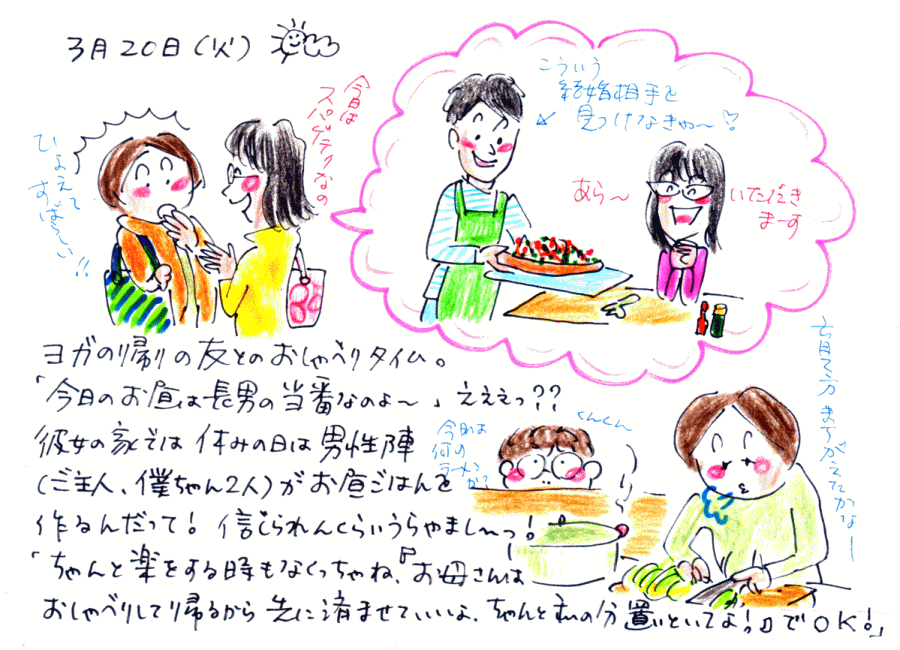 3月20日(火)
今日は
スパゲティなの
ひょえ〜
すばらしい!!
こういう
結婚相手を
見つけなきゃ〜♡
あら〜
いただき
まーす
ヨガの帰りの友とのおしゃべりタイム。
「今日のお昼は長男の当番なのよ〜」えええっ??
彼女の家では休みの日は男性陣
(ご主人、僕ちゃん2人)がお昼ごはんを
作るんだって!信じられんくらいうらやまし〜っ!
「ちゃんと楽をする時もなくっちゃね、『お母さんは
おしゃべりして帰るから先に済ませていいよ、ちゃんと私の分置いといてよ!』でOK!」
くんくん
今日は
何の
ラーメン
か?
育て方まちがえてたかなー